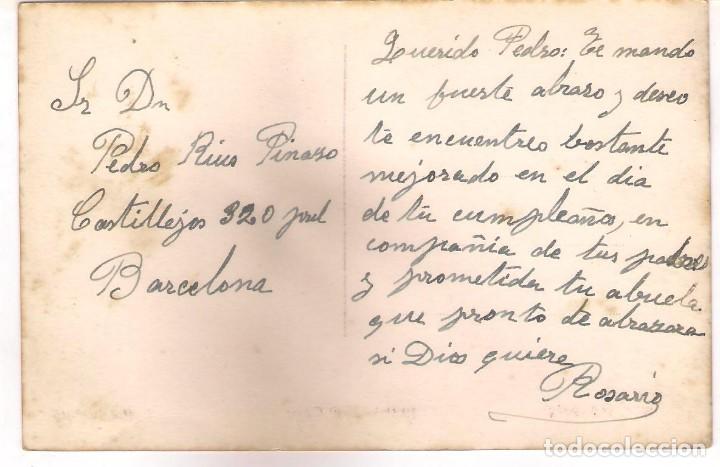 Sr Dn
Pedro Rius Pinazo
Castillejos 320 pral
Barcelona
Querido Pedro: Te mando
un fuerte abraso y deseo
te encuentres bastante
mejorado en el dia
de tu cumpleaños, en
compañia de tus padres
y prometida tu abuela
que pronto te abrazara
si Dios quiere
Rosario
todocoleccion